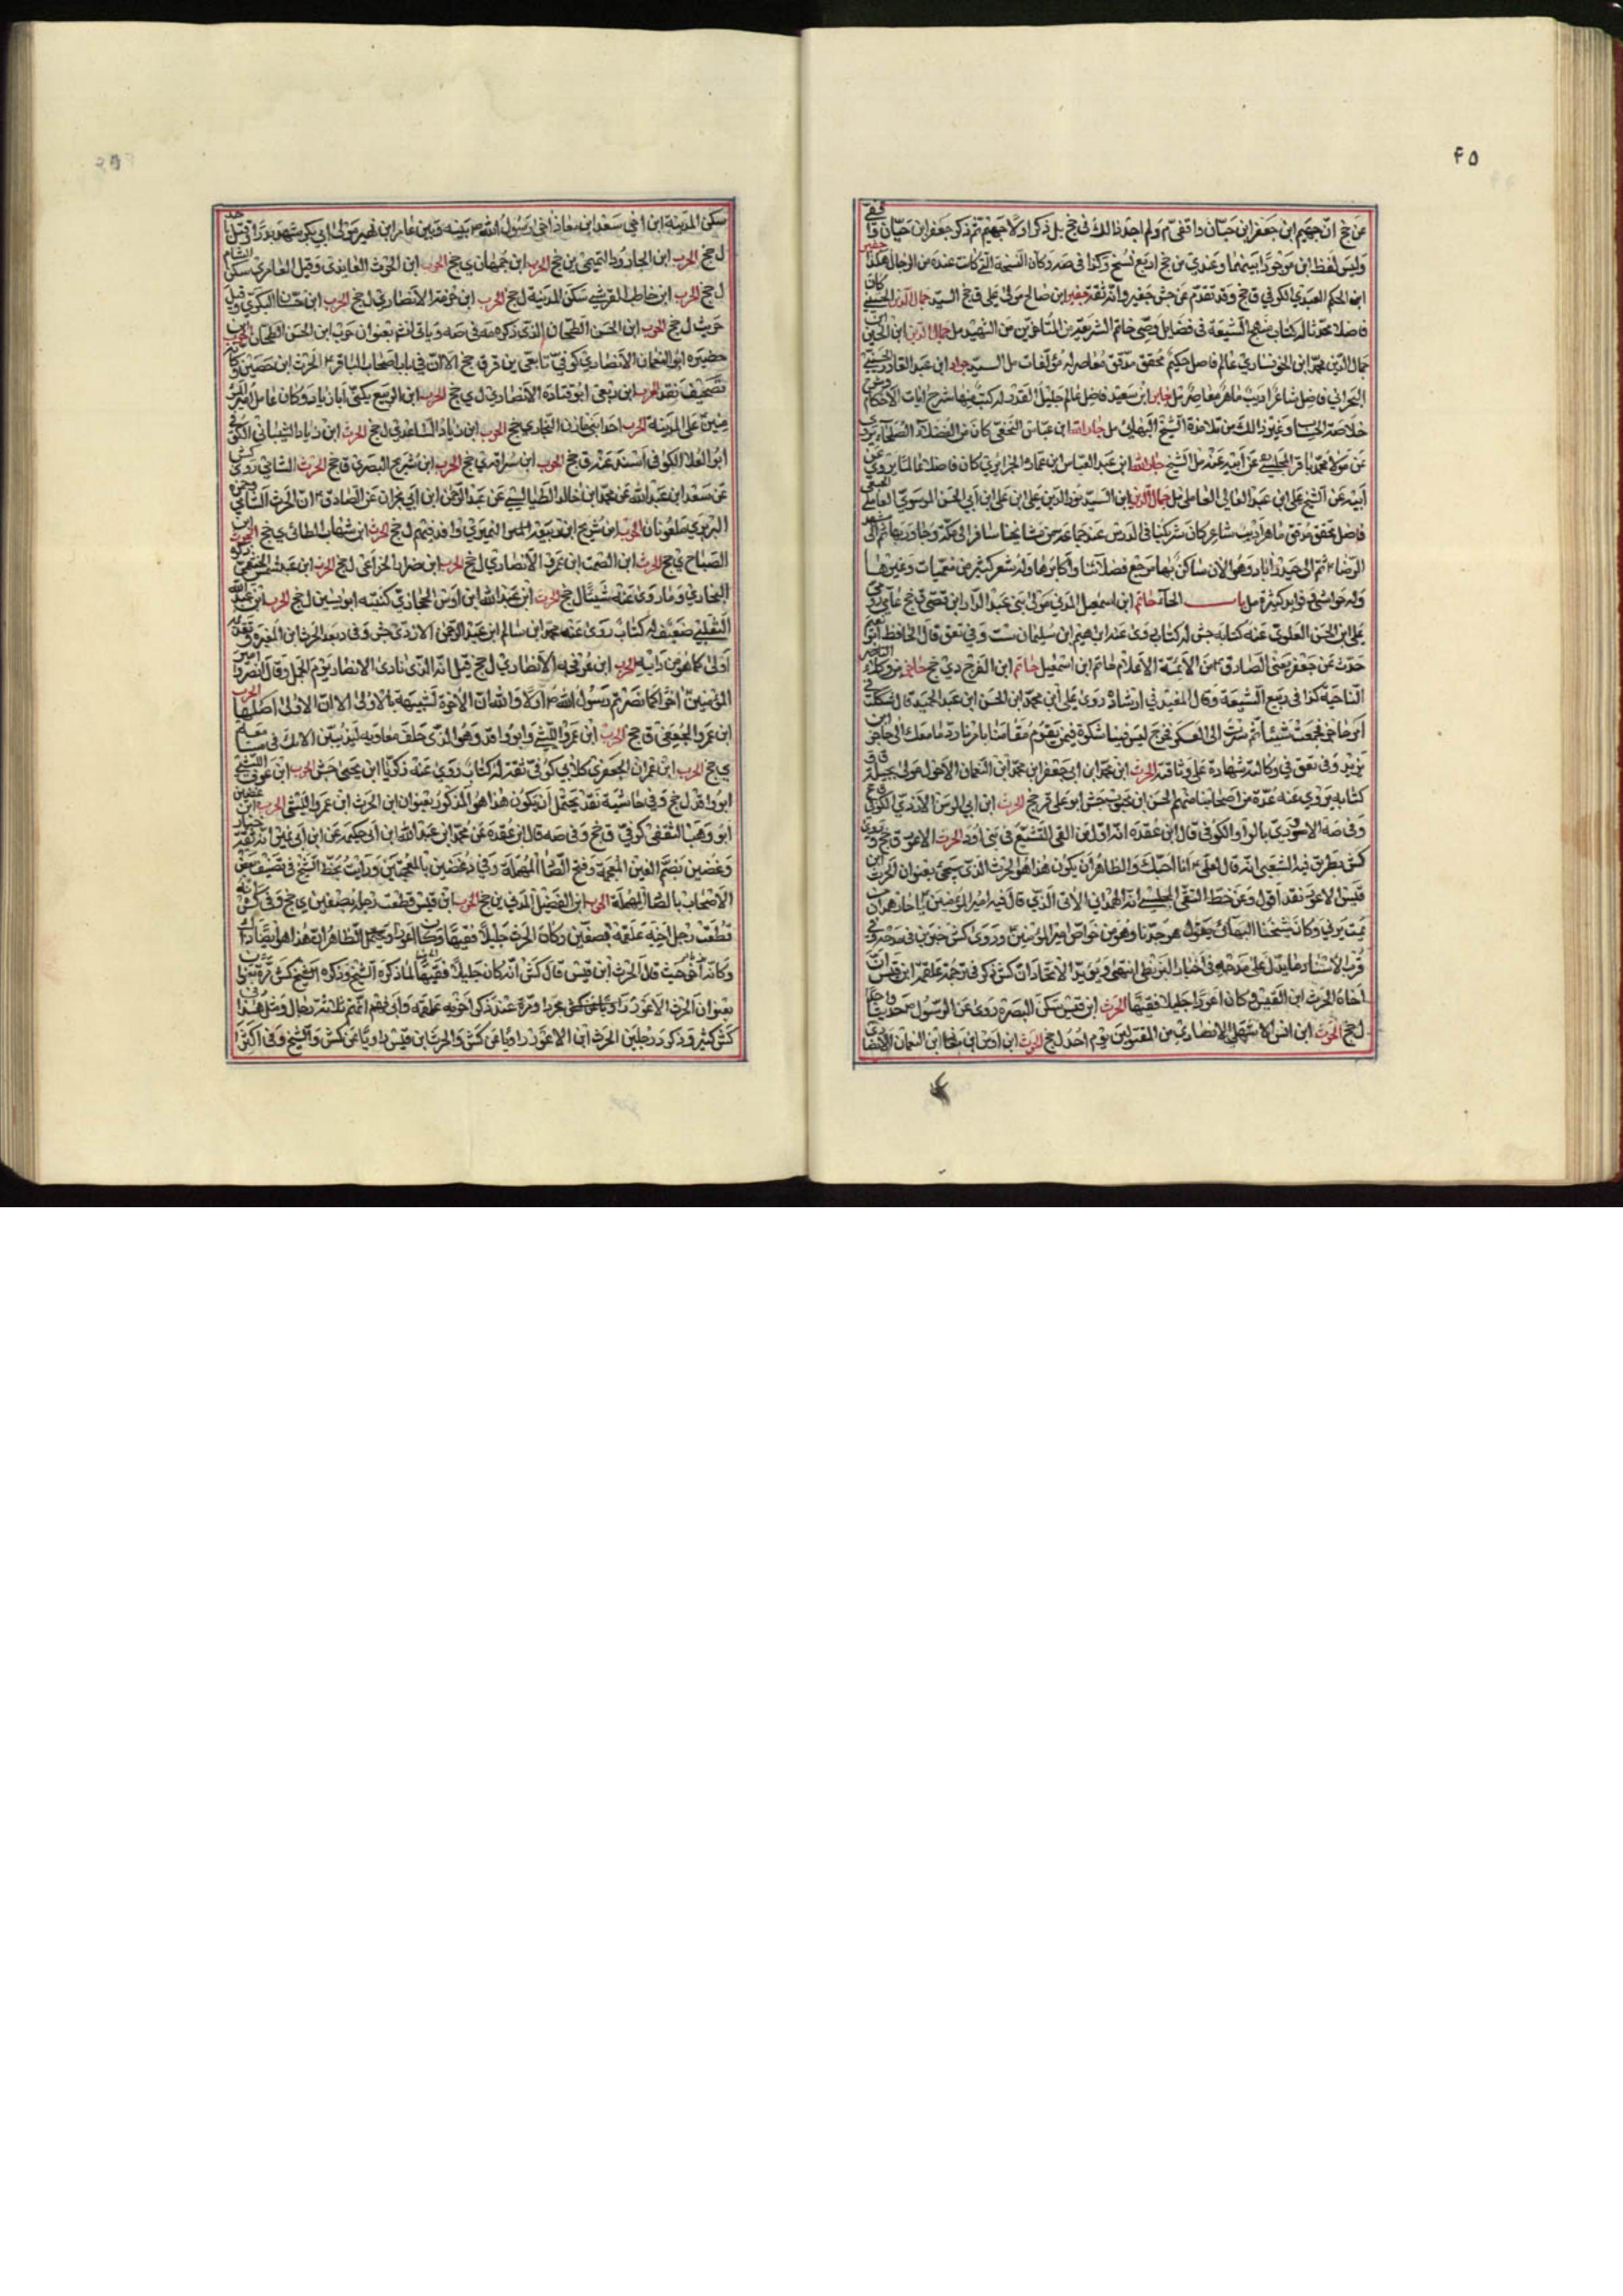 ۴۵
عن جخ ان جهيم ابن جعفر ابن حيان واقفى م ولم اجد ذالك فى جخ بل ذكر اولا جهيم ثم ذكر جعفر ابن حيان واقفى
وليس لفظ ابن موجودا بينهما وعندى من جخ اربع نسخ وكذا فى صه وكان النسخة التى كانت عنده من الرجال هكذا جفير
ابن الحكم العبدى الكوفى ق جخ وقد تقدم عن جش جفير وانه ثقة جفير ابن صالح مولى على ق جخ السيد جمال الدين الحسينى كان
فاضلا محدثا له كتاب منهج الشيعة فى فضايل وصى خاتم الشريعة من المتاخرين من الشهيد مل جمال الدين ابن الحسين ابن
جمال الدين محمد ابن الخونسارى عالم فاضل حكيم محقق مدقق معاصر له مؤلفات مل السيد جواد ابن عبد القادر الحسينى
البحرانى فاضل شاعر اديب ماهر معاصر مل جابر ابن سعيد فاضل عالم جليل القدر له كتب منها شرح ايات الاحكام
خلاصة الحساب وغير ذالك من تلامذة الشيخ البهائى مل جار الله ابن عباس النجفى كان من الفضلاء الصلحاء يروى
عن مولانا محمد باقر المجلسى عن ابيه عنه مل الشيخ جار الله ابن عبد العباس ابن عماد الجزايرى كان فاضلا عالما يروى عن
ابيه عن الشيخ على ابن عبد العالى العاملى مل جمال الدين ابن السيد نور الدين على ابن على ابن ابى الحسن الموسوى العاملى
فاضل محقق مدقق ماهر اديب شاعر كان شريكنا فى الدرس عند جماعة من مشايخنا سافر الى مكة وجاور بها ثم الى مشهد
الرضا ثم الى حيدر اباد وهو الان ساكن بها مرجع فضلائها واكابرها وله شعر كثير من معميات وغيرها
وله حواشى وفوايد كثيرة مل باب الحاء حاتم ابن اسمعيل المدنى مولى بنى عبد الدار ابن قصى ق جخ عامى روى
على ابن الحسن العلوى عنه كتابه جش له كتاب روى عنه ابراهيم ابن سليمان ست وفى تعق قال الحافظ ابو نعيم
حدث عن جعفر يعنى الصادق من الائمة الاعلام حاتم ابن اسمعيل حاتم ابن الفرج دى جخ حاجز من وكلاء
الناحية كذا فى ربيع الشيعة وقال المفيد فى ارشاده روى على ابن محمد ابن الحسن ابن عبد الحميد قال شككت فى
امر حاجز فجمعت شيئا ثم صرت الى العسكر فخرج ليس فينا شك ولا فيمن يقوم مقامنا بامرنا رد ما معك الى حاجز ابن
يزيد وفى تعق فى وكالته شهادة على وثاقته الحرث ابن محمد ابن ابى جعفر ابن محمد ابن النعمان الاحول مولى بجيلة
كتابه يروى عنه عدة من اصحابنا منهم الحسن ابن محبوب جش ابو على ق جخ الحرث ابن ابى الوسن الازدى الكوفى
وفى صه الاودى بالواو الكوفى قال ابن عقدة انه اول من القى التشيع فى بنى اود الحرث الاعور ى جخ وفى
كش بطريق فيه الشعبى انه قال لعلى انا احبك والظاهر ان يكون هذا هو الحرث الذى يجئ بعنوان الحرث ابن
قيس الاعور نقد اقول وعن خط التقى المجلسى انه الهمدانى الاتى الذى قال فيه امير المؤمنين يا حار همدان من
يمت يرنى وكان شيخنا البهائى يقول هو جدنا وهو من خواص امير المؤمنين وروى كش خبرين فى مدحه وفى
قرب الاسناد ما يدل على مدحه فى اخبار البزنطى انتهى ويؤيد الاتحاد ان كش ذكر فى ترجمة علقمة ابن قيس ان
اخاه الحرث ابن القيس وكان اعور اجليلا فقيها الحرث ابن قيس سكن البصرة روى عن الرسول حديثا
ل جخ الحرث ابن انس الاشهلى الانصارى من المقتولين يوم احد ل جخ الحرث ابن اوس ابن معاذ ابن النعمان الانصارى
سكن المدينة ابن اخى سعد ابن معاذ اخى رسول الله بينه وبين عامر ابن فهيره مولى ابى بكر شهد بدرا وقتل باحد
ل جخ الحرث ابن الجارود التيمى ين جخ الحرث ابن جمهان ى جخ الحرث ابن الحرث الغامدى وقيل العامرى سكن الشام
ل جخ الحرث ابن حاطب القرشى سكن المدينة ل جخ الحرث ابن خزمة الانصارى ل جخ الحرث ابن حسان البكرى وقيل
حريث ل جخ الحرث ابن الحسن الطحان الذى ذكره فى صه وياتى انه بعنوان حرب ابن الحسن الطحان الحرث ابن
حضيره ابو النعمان الازدى كوفى تابعى ين قر ق جخ
تصحيف نقد الحرث ابن ربعى ابو قتادة الانصارى ل ى جخ الحرث ابن الربيع يكنى ابا زياد وكان عامل امير المؤ
منين على المدينة الحرث احد بنى مازن النجارى جخ الحرث ابن زياد الساعدى ل جخ الحرث ابن زياد الشيبانى الكوفى
ابو العلا الكوفى اسند عنه ق جخ الحرث ابن سراقة ى جخ الحرث ابن شريح البصرى ق جخ الحرث الشامى روى كش
عن سعد ابن عبد الله عن محمد ابن خالد الطيالسى عن عبد الرحمن ابن ابى نجران عن الصادق ان الحرث الشامى وحمزة
البربرى ملعونان الحرث ابن شريح النميرى ل جخ الحرث ابن شهاب الطائى ى جخ الحرث ابن
الصباح ى جخ الحرث ابن الصمة ابن عمرو الانصارى ل جخ الحرث ابن ضرار الخزاعى ل جخ الحرث ابن عبد شمس الخثعمى ذكره
البخارى وما روى عنه شيئا ل جخ الحرث ابن عبد الله ابن اوس الحجازى كنيته ابو بشير ل جخ الحرث ابن عبد الله
التغلبى ضعيف له كتاب روى عنه محمد ابن سالم ابن عبد الرحمن الازدى جش وفى د بعد الحرث ابن المغيرة وتقديمه
اولى كما هو من دابه الحرث ابن عوف الانصارى ل جخ قيل انه الذى نادى الانصار يوم الجمل وقال انصروا امير
المؤمنين اخرا كما نصرتم رسول الله اولا والله ان الاخرة لشبيهة بالاولى الا ان الاولى افضلها الحرث
ابن عمرو الجعفى ق جخ الحرث ابن عمرو الليثى
ى جخ الحرث ابن عمران الجعفرى كلابى كوفى ثقة له كتاب روى عنه زكريا ابن يحيى جش الحرث ابن عوف الليثى
ابو واقد ل جخ وفى حاشية نقد يحتمل ان يكون هذا هو المذكور بعنوان ابن الحرث ابن عمرو الليثى الحرث ابن غضين
ابو وهب الثقفى كوفى ق جخ وفى صه قال ابن عقدة عن محمد ابن عبد الله ابن ابى حكيمة عن ابن نمير انه ثقة خيار
وغضين بضم الغين المعجمة وفتح الضاد المهملة وفى د غضين بالمعجمتين ورايت بخط الشيخ فى تصنيف بعض
الاصحاب بالصاد المهملة الحرث ابن الفضيل المدنى ين جخ الحرث ابن قيس قطعت رجله بصفين ى جخ وفى كش انه
قطعت رجل اخيه علقمة بصفين وكان الحرث جليلا فقيها وكان اعور
وكانه اخر حيث قال الحرث ابن قيس قال كش انه كان جليلا فقيها لما ذكره الشيخ وذكره الشيخ كش مرتين
بعنوان الحرث الاعور راويا عن كش مجردا ومرة عند ذكر اخويه علقمة وابى فهم انهم ثلاثة رجال ومثل هذا
كش كثير وذكر د رجلين الحرث ابن الاعور راويا عن كش والحرث ابن قيس راويا عن كش والشيخ وفى اكثر